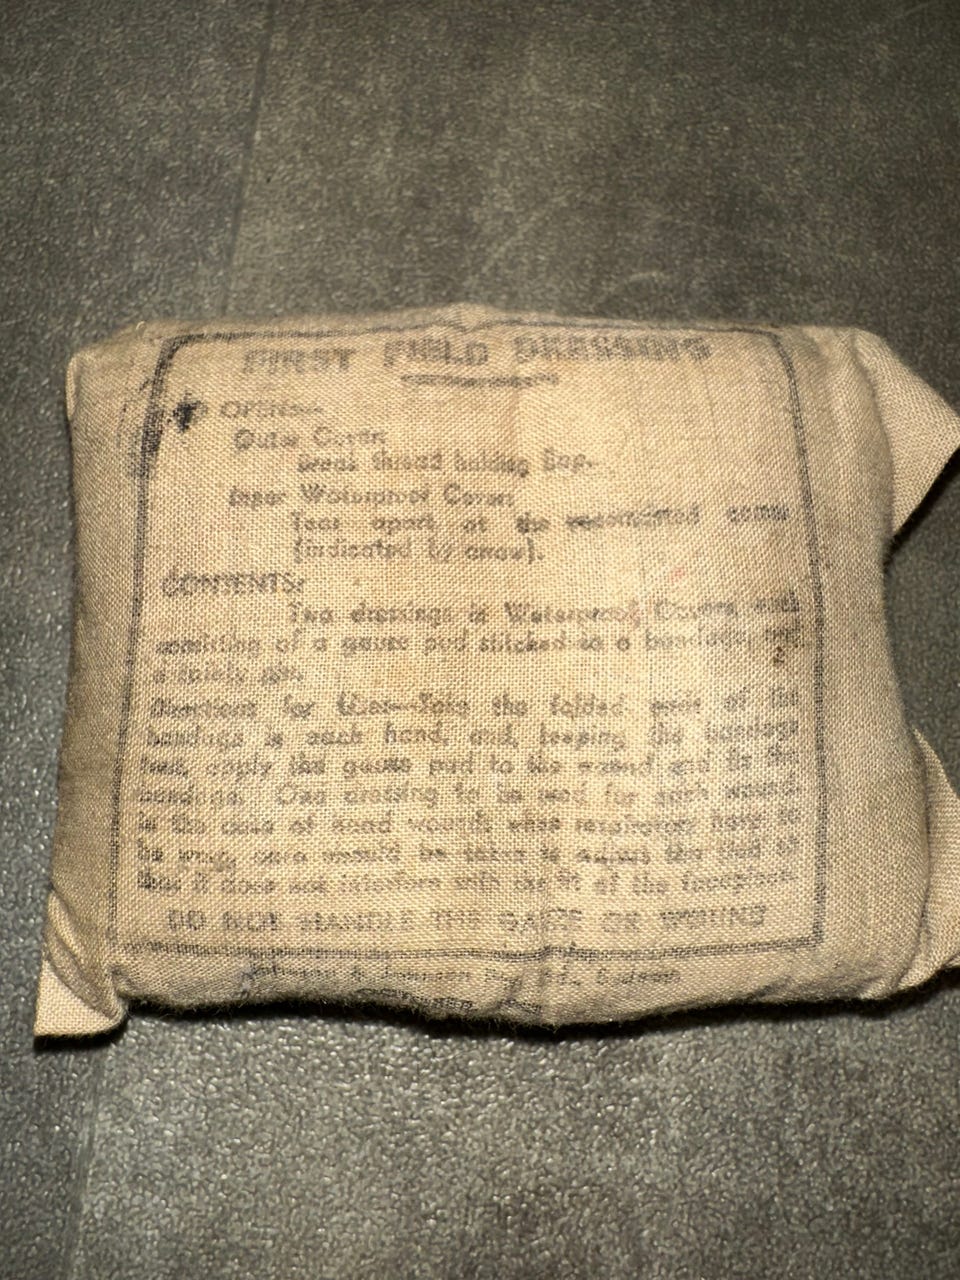 FIRST FIELD DRESSING
TO OPEN:—
Outer Cover:
Break thread holding flap.
Inner Waterproof Cover:
Tear apart at the uncemented corner
(indicated by arrow).
CONTENTS:
Two dressings in Waterproof Covers, each
consisting of a gauze pad stitched to a bandage, and
a safety pin.
Directions for Use:—Take the folded ends of the
bandage in each hand, and, keeping the bandage
taut, apply the gauze pad to the wound and fix the
bandage. One dressing to be used for each wound.
In the case of head wounds when respirators have to
be worn, care should be taken to adjust the pad so
that it does not interfere with the fit of the facepiece.
DO NOT HANDLE THE GAUZE OR WOUND
Johnson & Johnson